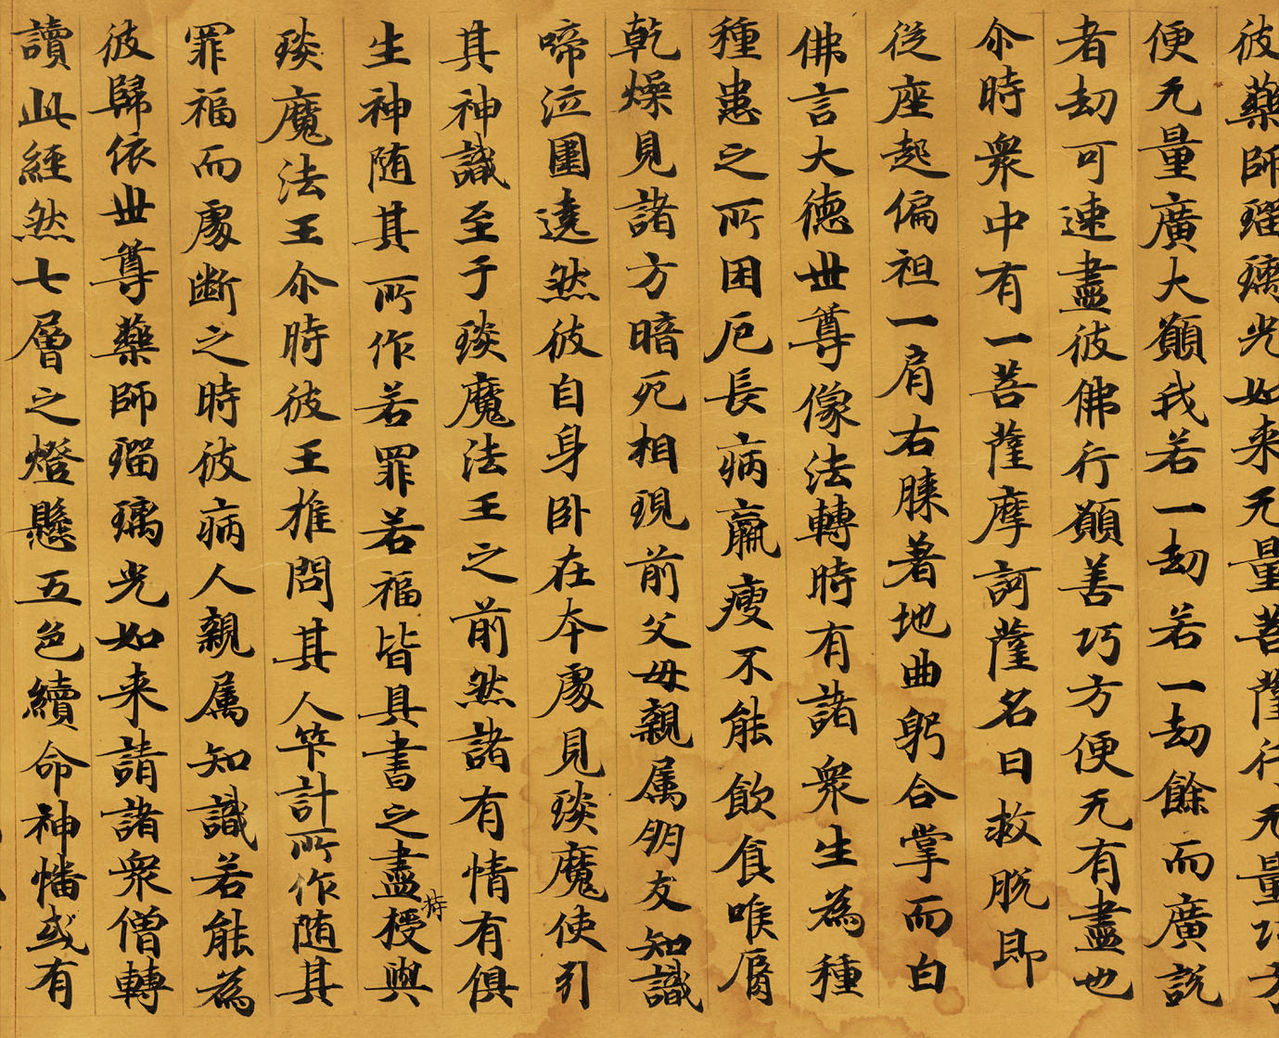 彼藥師瑠璃光如来无量菩薩行无量巧方
便无量廣大願我若一劫若一劫餘而廣説
者劫可速盡彼佛行願善巧方便无有盡也
尒時衆中有一菩薩摩訶薩名曰救脱即
従座起偏袒一肩右膝著地曲躬合掌而白
佛言大德丗尊像法轉時有諸衆生為種
種患之所困厄長病羸瘦不能飲食喉脣
乾燥見諸方暗死相現前父母親属朋友知識
啼泣圍遶然彼自身卧在本處見琰魔使引
其神識至于琰魔法王之前然諸有情有俱
生神随其所作若罪若福皆具書之盡持授與
琰魔法王尒時彼王推問其人笇計所作随其
罪福而處断之時彼病人親属知識若能為
彼歸依丗尊藥師瑠璃光如来請諸衆僧轉
讀此經然七層之燈懸五色續命神幡或有